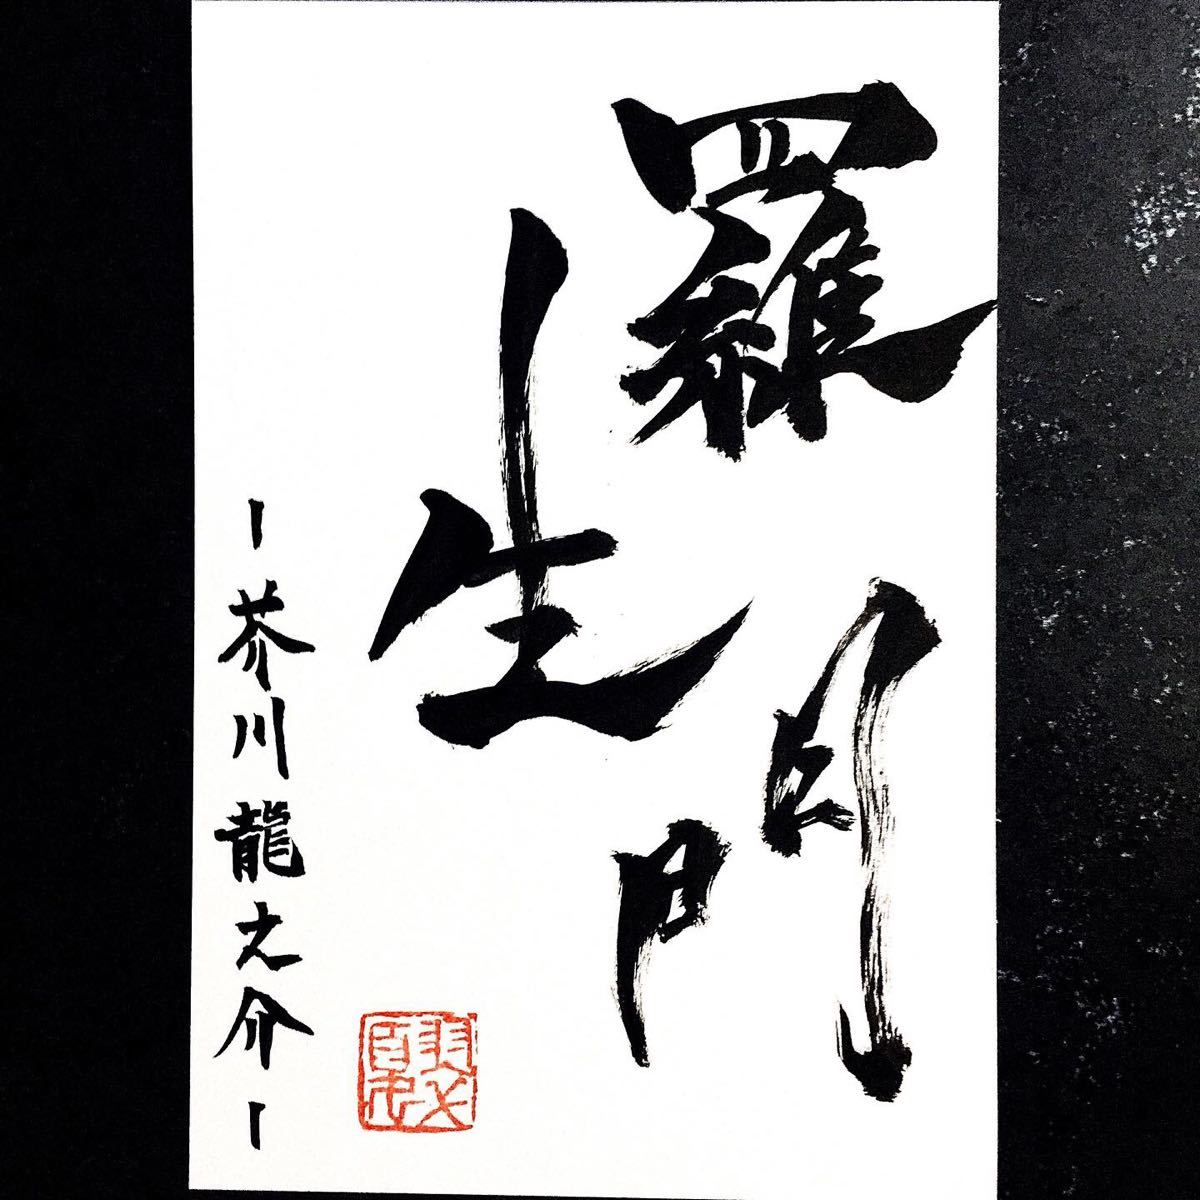 羅生門
-芥川龍之介-